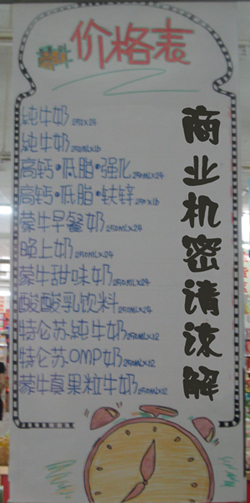 价格表
纯牛奶 250X24
纯牛奶 250mlX16
高钙·低脂·强化 250mlX24
高钙·低脂·铁锌 250X16
蒙牛早餐奶 250mlX24
晚上奶 250mlX24
蒙牛甜味奶 250mlX24
酸酸乳饮料 250mlX24
特仑苏纯牛奶 250mlX12
特仑苏OMP奶 250mlX12
蒙牛真果粒牛奶 250mlX12
商业机密请谅解